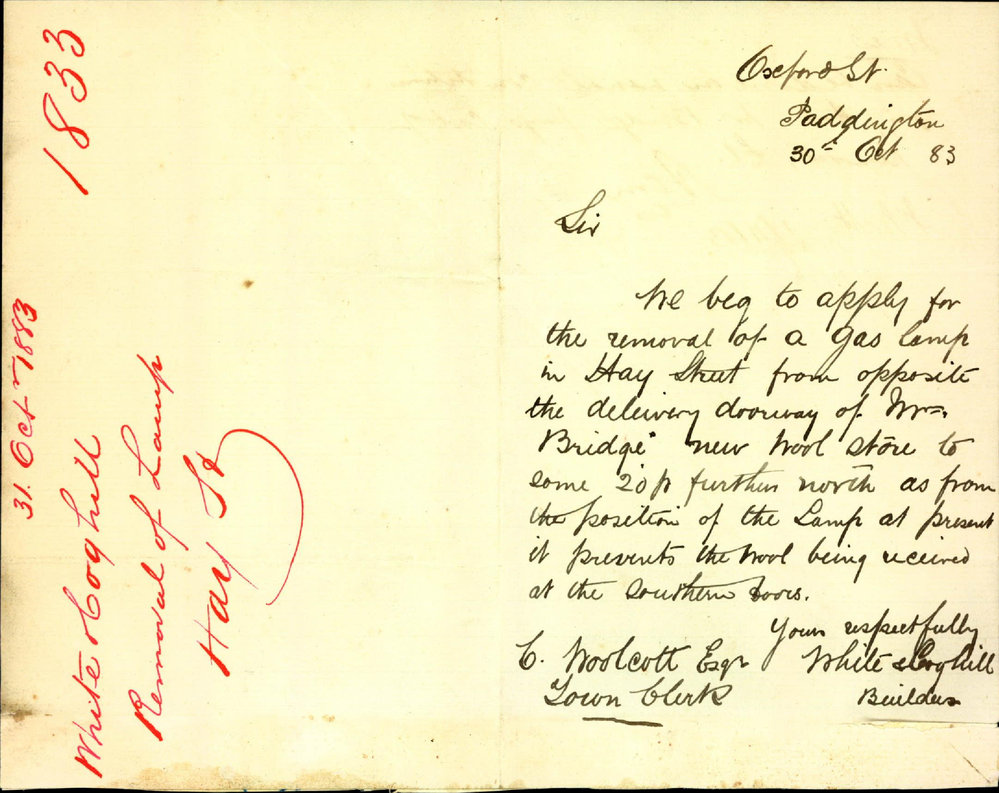 1833
31. Octr 1883
White & Coghill
Removal of Lamp
Hay St
Oxford St.
Paddington
30th Oct 83
Sir
We beg to apply for
the removal of a Gas Lamp
in Hay Street from opposite
the delivery doorway of Mrs.
Bridge" new Wool Store to
some 20ft further north as from
the position of the Lamp at present
it prevents the Wool being received
at the southern doors.
Yours respectfully
White & Coghill
Builders
C. Woolcott Esqr
Town Clerk